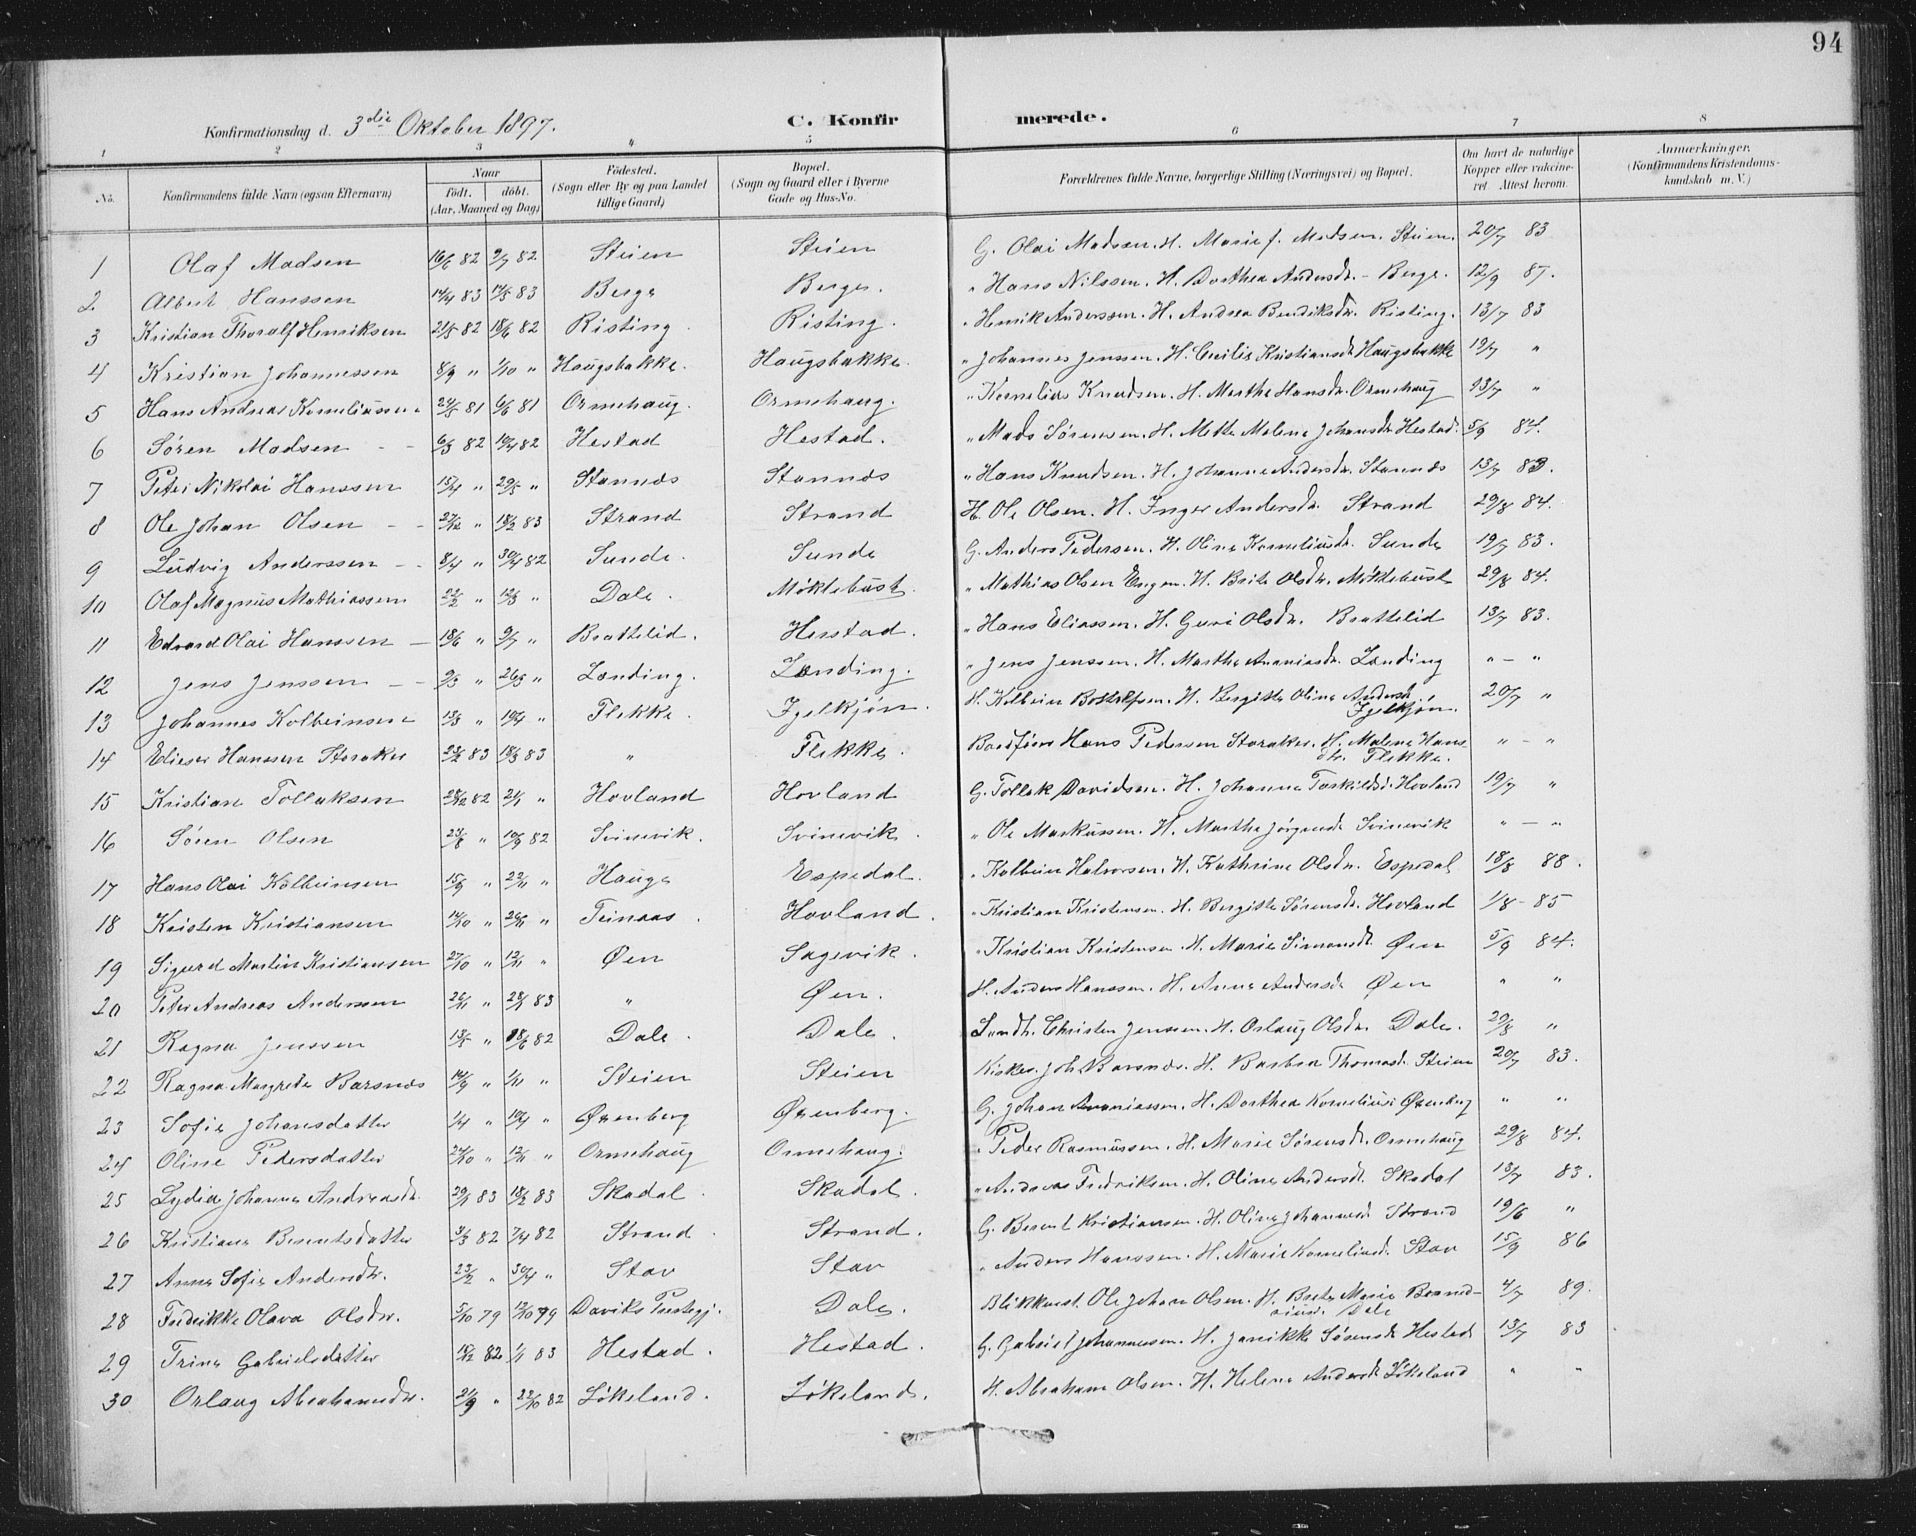 94
Konfirmationsdag d. 3die Oktober 1897. C. Konfirmerede.
1 2 3 4 5 6 7 8
No. Konfirmandens fulde Navn (ogsaa Efternavn) Naar födt. döbt. (Aar, Maaned og Dag) Födested. (Sogn eller By og paa Landet tillige Gaard) Bopæl. (Sogn og Gaard eller i Byerne Gade og Hus-No. Forældrenes fulde Navne, borgerlige Stilling (Næringsvei) og Bopæl. Om havt de naturlige Kopper eller vakcineret. Attest herom. Anmærkninger. (Konfirmandens Kristendomskundskab m. V.)
1 Olaf Madsen 16/6 82 9/7 82 Steien Steien G. Olai Madsen. H. Marie f. Madsen. Steien. 20/7 83
2 Albert Hanssen 14/4 83 14/5 83 Berge Berge. " Hans Nilssen. H. Dorthea Andersdr. - Berge. 12/9 87.
3 Kristian Thoralf Henriksen 21/5 82 18/6 82 Risting. Risting. " Henrik Anderssen. H. Andrea Bendiksdr. Risting. 13/7 83
4 Kristian Johannessen 8/9 " 1/10 " Haugsbakke. Haugsbakke. " Johannes Jenssen. H. Cecilie Kristiansdr. Haugsbakke 19/7 "
5 Hans Andreas Korneliussen 24/5 81 6/6 81 Ormehaug. Ormehaug. " Kornelius Knudsen. H. Marthe Hansdr. Ormehaug 13/7 "
6 Sören Madsen - - 6/3 82 10/4 82 Hestad Hestad. " Mads Sörensen. H. Mette Malene Johansdr. Hestad. 5/9 84.
7 Peter Nikolai Hanssen 15/4 " 29/5 " Stannes Stannes " Hans Knudsen. H. Johanne Andersdr. Stannes 13/7 83.
8 Ole Johan Olsen - - 27/12 " 18/2 83 Strand Strand H. Ole Olsen. H. Inger Andersdr. Strand 29/8 84.
9 Ludvig Anderssen - - 8/4 " 30/4 82 Sunde. Sunde G. Anders Pedersen. H. Oline Korneliusdr. Sunde 19/7 83.
10 Olaf Magnus Mathiassen 22/2 " 12/3 " Dale. Møklebust. " Mathias Olsen Engen. H. Brite Olsdr. Møklebust 29/8 84.
11 Edvard Olai Hanssen - 18/6 " 9/7 " Brattelid. Herstad. " Hans Eliassen. H. Guri Olsdr. Brattelid 13/7 83.
12 Jens Jenssen - - 9/3 " 26/3 " Lending. Lending. " Jens Jenssen. H. Marthe Ananiasdr. Lending " - "
13 Johannes Kolbeinsen 13/3 " 10/4 " Flekke. Igelkjön. H. Kolbein Bottolfsen. H. Bergitte Oline Andersdr. Igelkjön. 20/7 "
14 Elieser Hanssen Storaker 23/2 83 18/3 83 " Flekke. Baadfører Hans Pedersen Storaker. H. Malene Hansdr. Flekke. " - "
15 Kristian Tollaksen 28/12 82 2/1 " Hovland Hovland G. Tollak Davidsen. H. Johanna Torkildsd. Hovland 19/7 "
16 Sören Olsen 23/8 " 10/9 82 Svinevik. Svinevik. " Ole Markussen. H. Marthe Jörgensdr. Svinevik " - "
17 Hans Olai Kolbeinsen 15/9 " 22/11 " Hauge Espedal. " Kolbein Halvorsen. H. Kathrine Olsdr. Espedal 18/8 88.
18 Kristen Kristiansen 14/10 " 26/11 " Teinaas. Hovland. " Kristian Kristensen. H. Bergitte Sörensdr. Hovland 1/8 - 85
19 Sigurd Martin Kristiansen 27/10 " 12/11 " Øen Sagevik. " Kristian Kristensen. H. Marie Simonsdr. Øen 5/9 84.
20 Peter Andreas Anderssen 26/11 " 28/1 83 " Øen. H. Anders Hanssen. H. Anne Andersdr. Øen " "
21 Ragna Jenssen 13/5 " 18/6 82 Dale. Dale. Landh. Christen Jenssen. H. Oslaug Olsdr. Dale. 29/8 "
22 Ragna Margrete Barsnes 14/9 " 1/11 " Steien Steien Kirkes. Joh. Barsnes. H. Barbra Thomasdr. Steien 20/7 83.
23 Sofie Johansdatter 1/4 " 10/4 " Øxenberg Øxenberg. G. Johan Ananiassen. H. Dorthea Korneliusd. Øxenberg " "
24 Oline Pedersdatter 24/10 " 12/11 " Ormehaug Ormehaug. " Peder Rasmussen. H. Marie Sörensdr. Ormehaug 29/8 84.
25 Lydia Johanna Andreasdr. 29/1 83 18/2 83 Skadal. Skadal. " Andreas Fredriksen. H. Oline Andersdr. Skadal 13/7 83.
26 Kristiane Berentsdatter 3/3 82 7/4 82 Strand. Strand. G. Berent Kristiansen. H. Oline Johannesdr. Strand 19/6 "
27 Anne Sofie Andersdr. 23/2 " 30/4 " Stav Stav " Anders Hanssen. H. Marie Korneliusdr. Stav 15/9 86
28 Fredrikke Olava Olsdr. 5/10 79 12/10 79 Daviks Prestegj. Dale. Blikkensl. Ole Johan Olsen. H. Brete Marie Dale 4/7 89.
29 Trine Gabrielsdatter 18/12 82 1/1 83 Hestad. Hestad. G. Gabriel Johannessen. H. Janikke Sörensdr. Hestad 13/7 83
30 Orlaug Abrahamsdr. 21/9 " 22/10 82 Løkeland. Løkeland. H. Abraham Olsen. H. Helene Andersdr. Løkeland " "